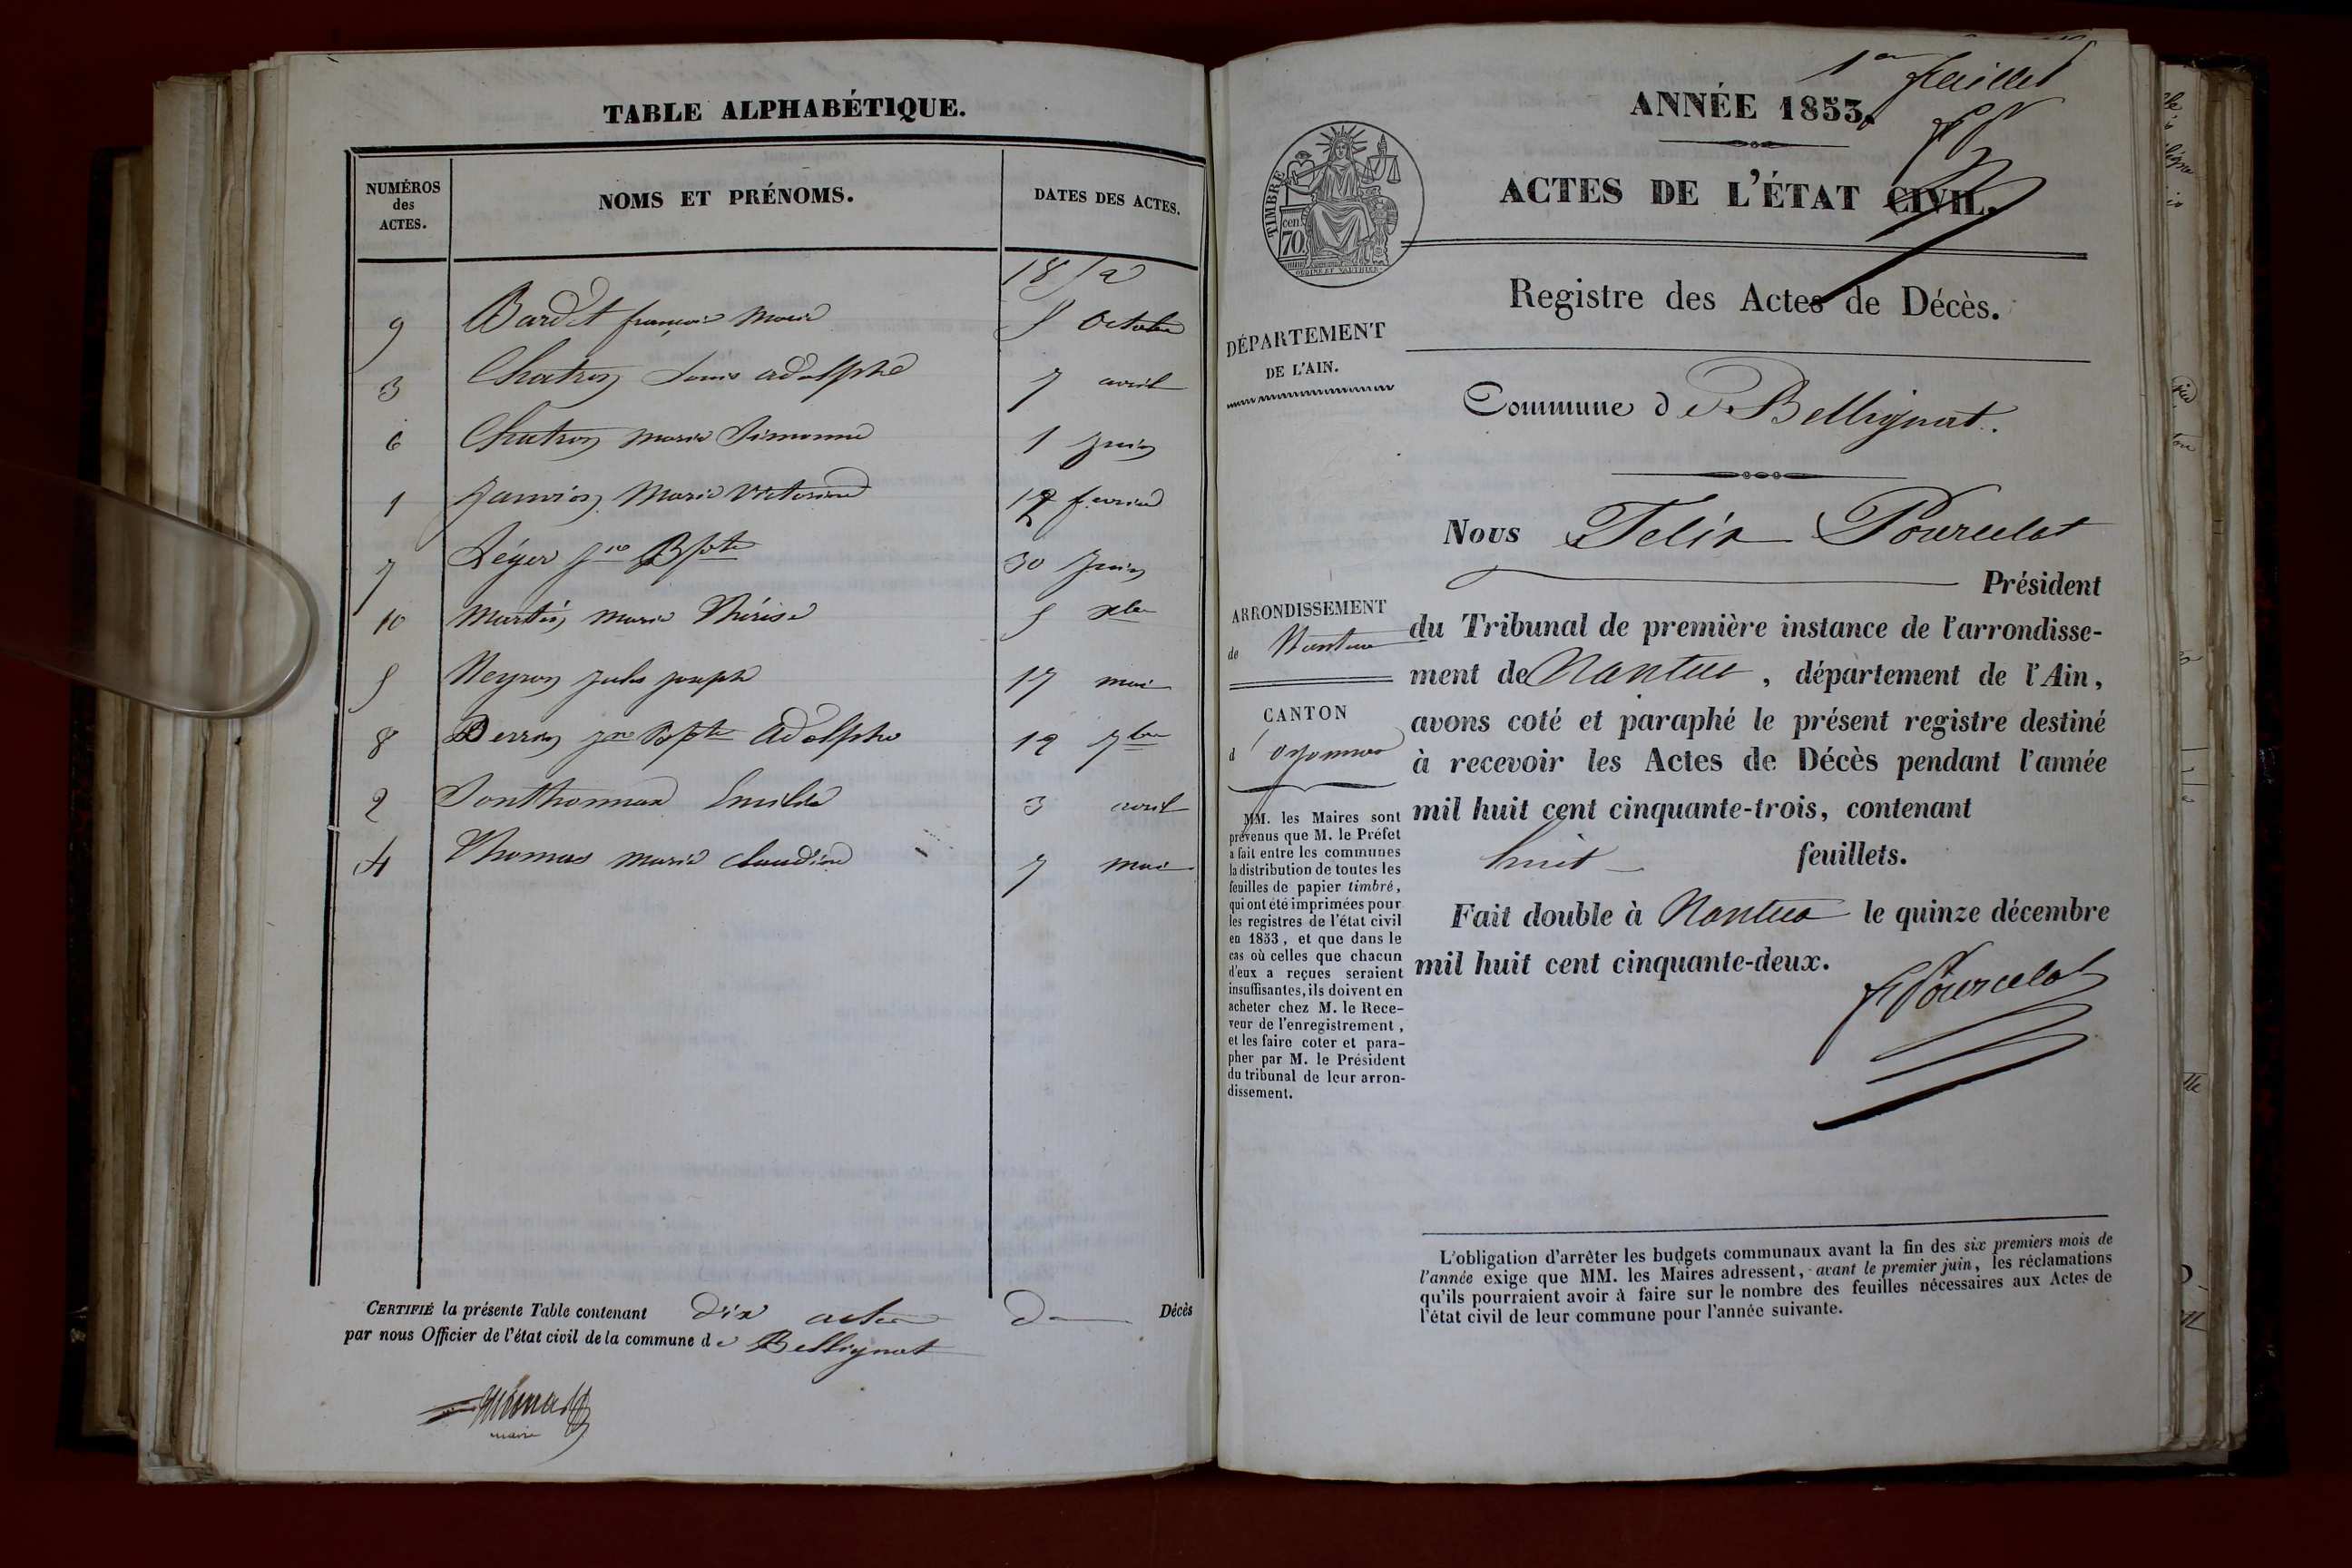 TABLE ALPHABÉTIQUE.
NUMÉROS des ACTES.
NOMS ET PRÉNOMS.
DATES DES ACTES.
1852
9 Bardet françois Marie 5 Octobre
3 Chatron Louis adolphe 7 avril
6 Chatron Marie Simonne 1 juin
1 Janvion Marie Victorine février
7 Léger Jne Bpte 30 juin
10 Martin Marie Thérèse 5 xbre
5 Neyron jules joseph 17 mai
8 Perrin Jn Bpte Adolphe 12 7bre
2 Sonthonnax 3 avril
4 Thomas marie claudine 7 mai
CERTIFIÉ la présente Table contenant dix actes de Décès
par nous Officier de l'état civil de la commune de Bellignat
maire
1er feuillet
ANNÉE 1853.
ACTES DE L'ÉTAT CIVIL.
TIMBRE
70 cen.
Registre des Actes de Décès.
DÉPARTEMENT
DE L'AIN.
Commune de Bellignat.
Nous Félix Pourcelot
Président
ARRONDISSEMENT
de Nantua
CANTON
d'oyonnax
MM. les Maires sont
prévenus que M. le Préfet
a fait entre les communes
la distribution de toutes les
feuilles de papier timbré,
qui ont été imprimées pour
les registres de l'état civil
en 1853, et que dans le
cas où celles que chacun
d'eux a reçues seraient
insuffisantes, ils doivent en
acheter chez M. le Rece-
veur de l'enregistrement,
et les faire coter et para-
pher par M. le Président
du tribunal de leur arron-
dissement.
du Tribunal de première instance de l'arrondisse-
ment de Nantua, département de l'Ain,
avons coté et paraphé le présent registre destiné
à recevoir les Actes de Décès pendant l'année
mil huit cent cinquante-trois, contenant
huit feuillets.
Fait double à Nantua le quinze décembre
mil huit cent cinquante-deux.
F Pourcelot
L'obligation d'arrêter les budgets communaux avant la fin des six premiers mois de
l'année exige que MM. les Maires adressent, avant le premier juin, les réclamations
qu'ils pourraient avoir à faire sur le nombre des feuilles nécessaires aux Actes de
l'état civil de leur commune pour l'année suivante.